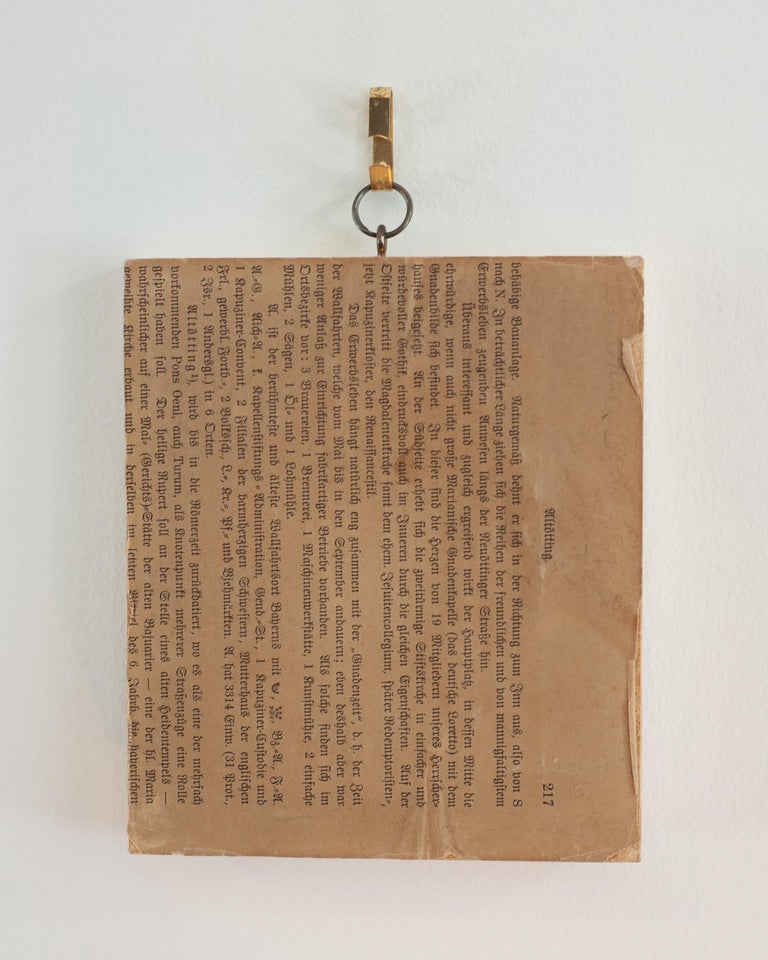 Altötting. 217
behäbige Bauanlage. Naturgemäß dehnt er sich in der Richtung zum Inn aus, also von S
nach N. In beträchtlicher Länge ziehen sich die Reihen der freundlichen und von mannigfaltigstem
Erwerbsleben zeugenden Anwesen längs der Neuöttinger Straße hin.
Überaus interessant und zugleich ergreifend wirkt der Hauptplatz, in dessen Mitte die
ehrwürdige, wenn auch nicht große Marianische Gnadenkapelle (das deutsche Loretto) mit dem
Gnadenbilde sich befindet. In dieser sind die Herzen von 19 Mitgliedern unseres Herrscher-
hauses beigesetzt. An der Südseite erhebt sich die zweitürmige Stiftskirche in einfacher und
würdevoller Gothik, eindrucksvoll auch im Inneren durch die gleichen Eigenschaften. Auf der
Ostseite vertritt die Magdalenenkirche samt dem ehem. Jesuitencollegium, später Redemptoristen-,
jetzt Kapuzinerkloster, den Renaissancestil.
Das Erwerbsleben hängt natürlich eng zusammen mit der „Gnadenzeit“, d. h. der Zeit
der Wallfahrten, welche vom Mai bis in den September andauern; eben deshalb aber war
weniger Anlaß zur Einrichtung fabrikartiger Betriebe vorhanden. Als solche finden sich im
Ortsbezirke vor: 3 Brauereien, 1 Brennerei, 1 Maschinenwerkstätte, 1 Kunstmühle, 2 einfache
Mühlen, 2 Sägen, 1 Öl- und 1 Lohmühle.
A. ist der berühmteste und älteste Wallfahrtsort Bayerns mit Bz.-A., F.-A.
A.-G., Aich-A., k. Kapellenstiftungs-Administration, Gend.-St., 1 Kapuziner-Custodie und
1 Kapuziner-Convent, 2 Filialen der barmherzigen Schwestern, Mutterhaus der englischen
Frl., gewerbl. Fortb.-, 2 Volkssch., L.-, Kr.-, Pf.- und Viehmärkten. A. hat 3314 Einw. (31 Prot.,
2 Isr., 1 Andersgl.) in 6 Orten.
Altötting¹), wird bis in die Römerzeit zurückdatiert, wo es als eine der mehrfach
vorkommenden Pons Oeni, auch Turum, als Knotenpunkt mehrerer Straßenzüge eine Rolle
gespielt haben soll. Der heilige Rupert soll an der Stelle eines alten Heidentempels —
wahrscheinlicher auf einer Mal- (Gerichts)-Stätte der alten Bajuarier — eine der hl. Maria
geweihte Kirche erbaut und in derselben im letzten des 6. Jahrh. die bayerischen